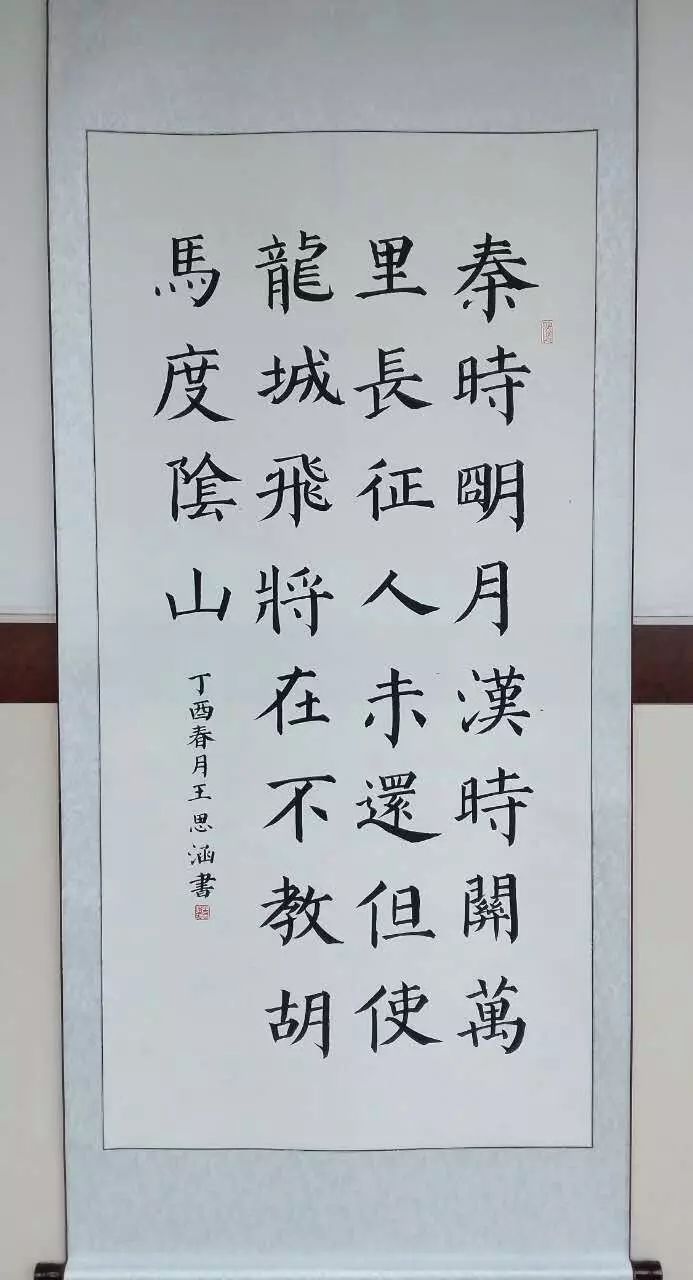 秦時明月漢時關萬
里長征人未還但使
龍城飛將在不教胡
馬度陰山
丁酉春月王思涵書